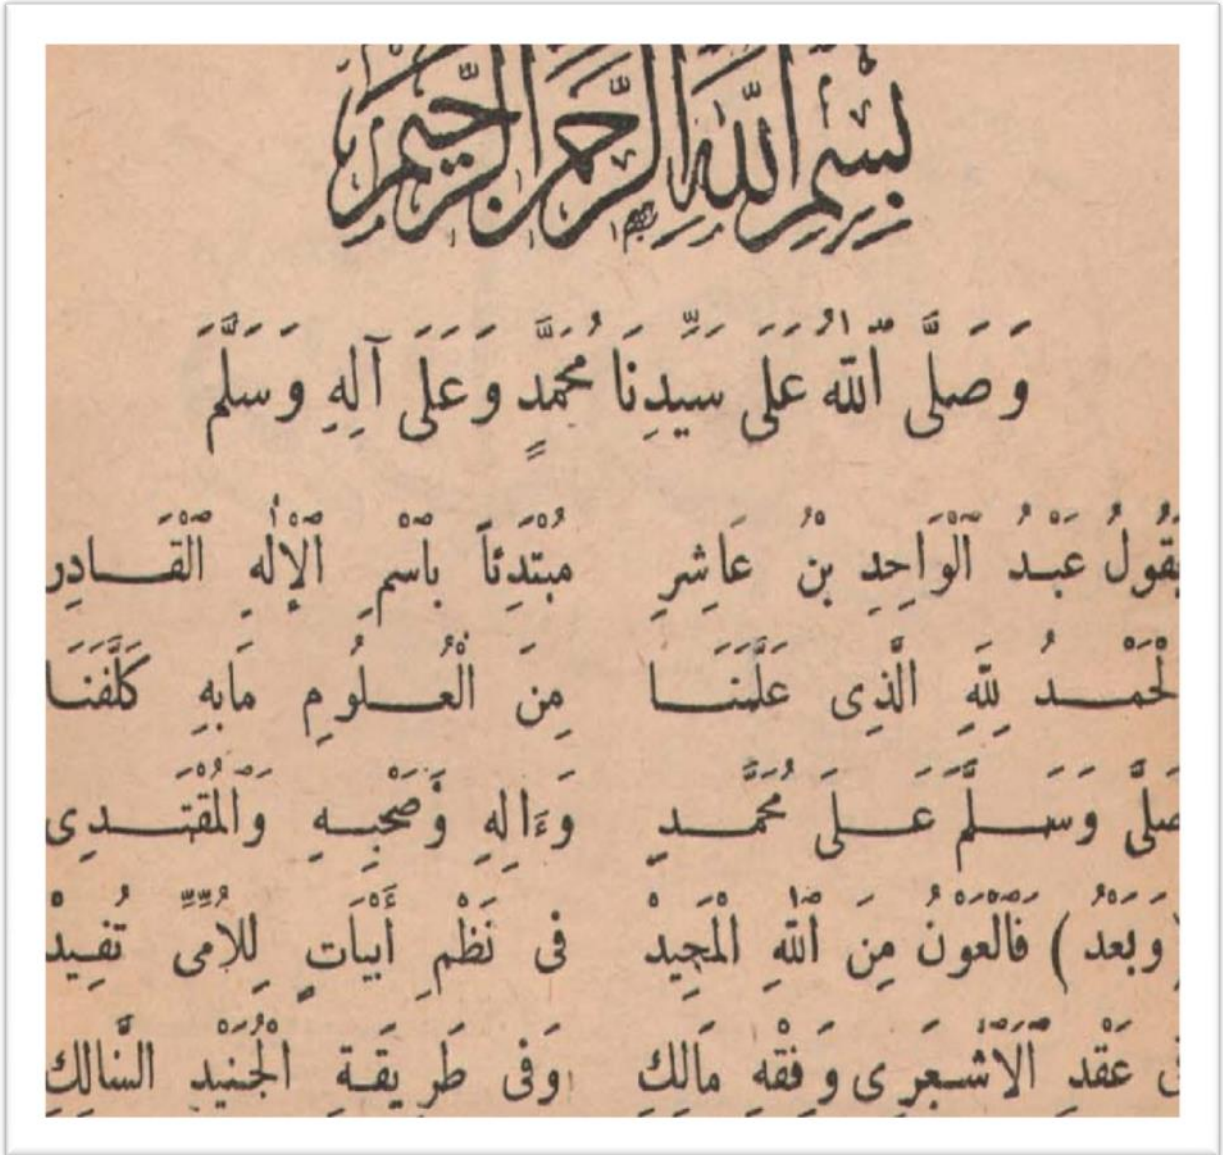 بِسْمِ اللَّهِ الرَّحْمَنِ الرَّحِيمِ
وَصَلَّى ٱللّٰهُ عَلَى سَيِّدِنَا مُحَمَّدٍ وَعَلَى آلِهِ وَسَلَّمَ
يَقُولُ عَبْدُ ٱلْوَاحِدِ بْنُ عَاشِرِ مُبْتَدِئاً بِاسْمِ ٱلْإِلٰهِ ٱلْقَادِرِ
لْحَمْدُ لِلّهِ الَّذِى عَلَّمَنَا مِنَ الْعُلُومِ مَابِهِ كَلَّفَنَا
صَلَّى وَسَلَّمَ عَلَى مُحَمَّدِ وَءَالِهِ وَصَحْبِهِ وَالْمُقْتَدِى
(وَبَعْدُ) فَالْعَوْنُ مِنَ ٱللّٰهِ الْمَجِيدْ فى نَظْمِ أَبْيَاتٍ لِلْأُمِّىِّ تُفِيدْ
فى عَقْدِ ٱلْأَشْعَرِى وَفِقْهِ مَالِكِ وَفى طَرِيقَةِ الْجُنَيْدِ السَّالِكِ